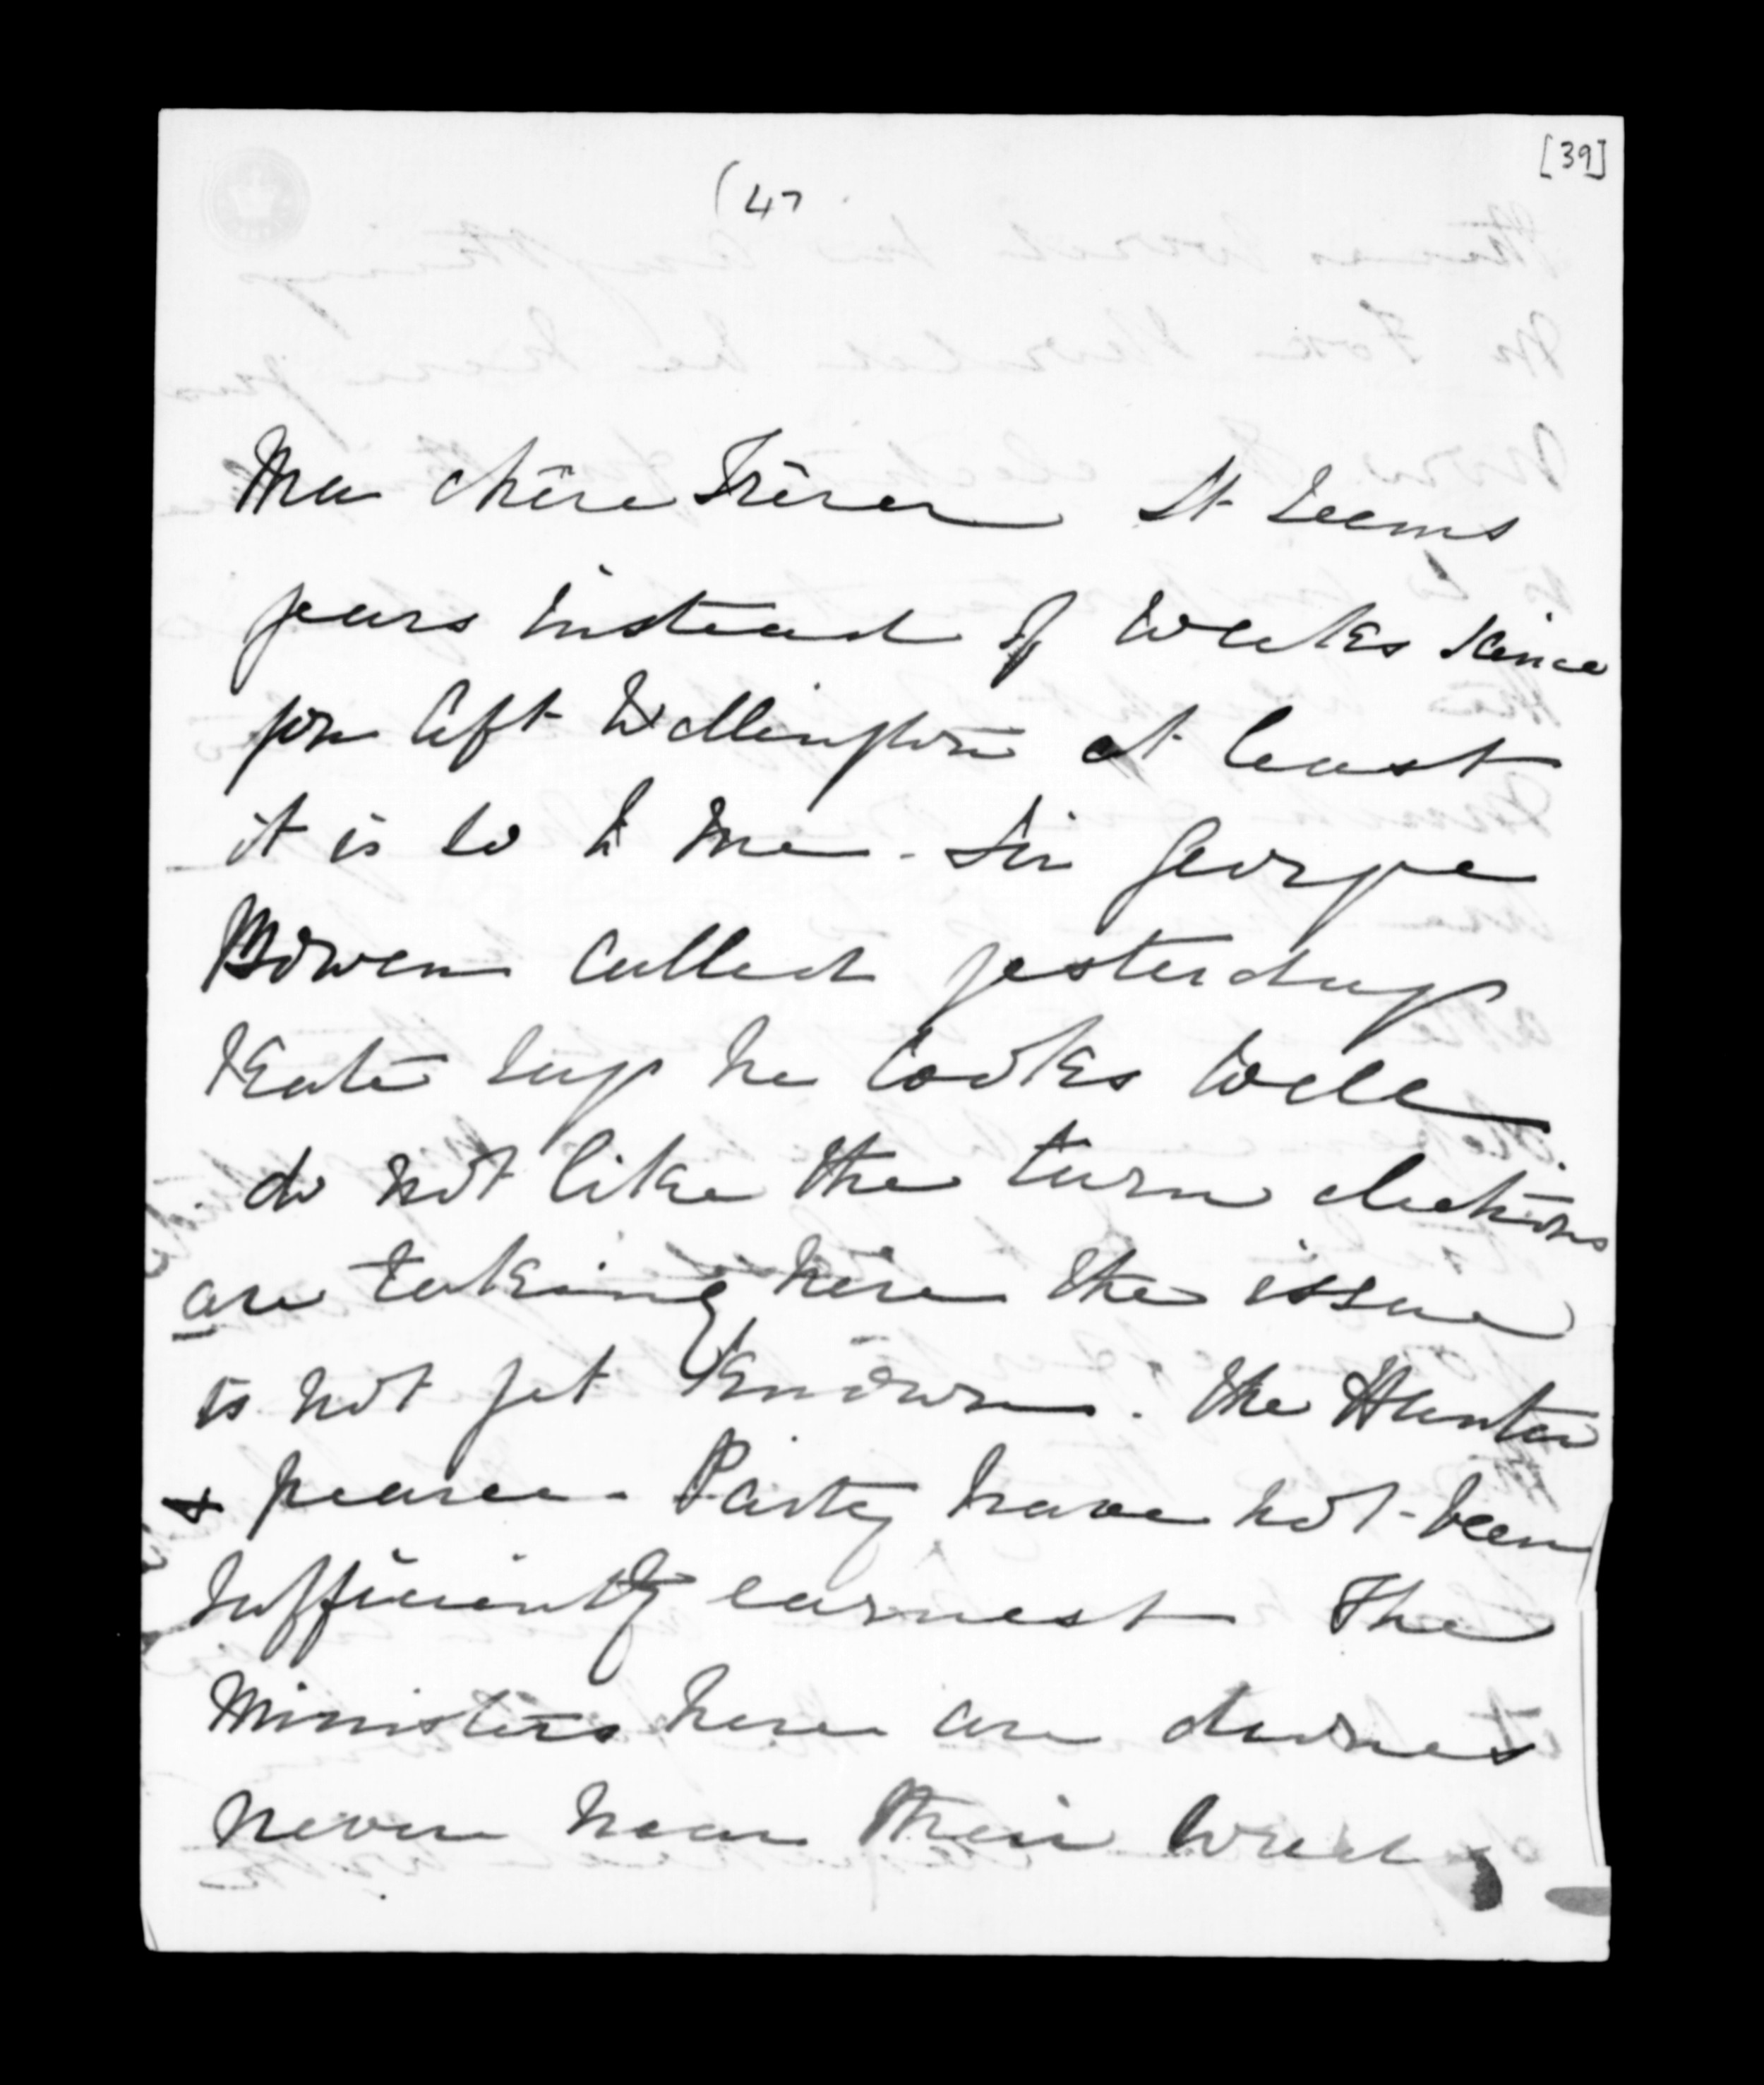 [39]
(47
Ma chère Frère It seems
years instead of weeks since
you left Wellington at least
it is so to me. Sir George
Bowen called yesterday
Kate says he looks well
do not like the turn elections
are taking here the issue
is not yet known. The Hunter
& pearce Party have not been
sufficiently earnest The
Ministers here are
never near their